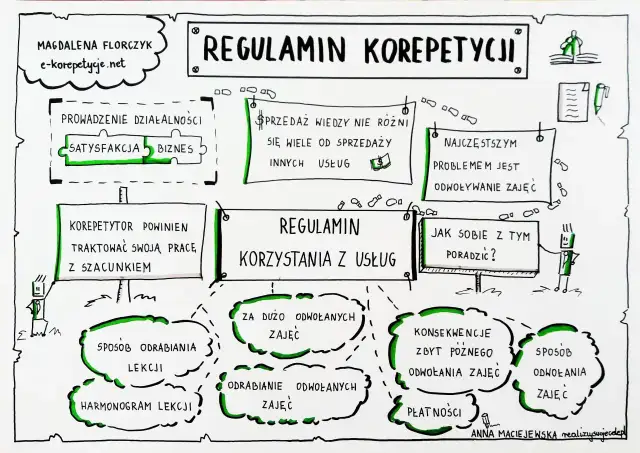 MAGDALENA FLORCZYK
e-korepetycje.net
REGULAMIN KOREPETYCJI
PROWADZENIE DZIAŁALNOŚCI
SATYSFAKCJA BIZNES
SPRZEDAŻ WIEDZY NIE RÓŻNI
SIĘ WIELE OD SPRZEDAŻY
INNYCH USŁUG
NAJCZĘSTSZYM
PROBLEMEM JEST
ODWOŁYWANIE ZAJĘĆ
KOREPETYTOR POWINIEN
TRAKTOWAĆ SWOJĄ PRACĘ
Z SZACUNKIEM
REGULAMIN
KORZYSTANIA Z USŁUG
JAK SOBIE Z TYM
PORADZIĆ?
SPOSÓB ODRABIANIA
LEKCJI
HARMONOGRAM LEKCJI
ZA DUŻO ODWOŁANYCH
ZAJĘĆ
ODRABIANIE ODWOŁANYCH
ZAJĘĆ
KONSEKWENCJE
ZBYT PÓŹNEGO
ODWOŁANIA ZAJĘĆ
PŁATNOŚCI
SPOSÓB
ODWOŁANIA
ZAJĘĆ
ANNA MACIEJEWSKA